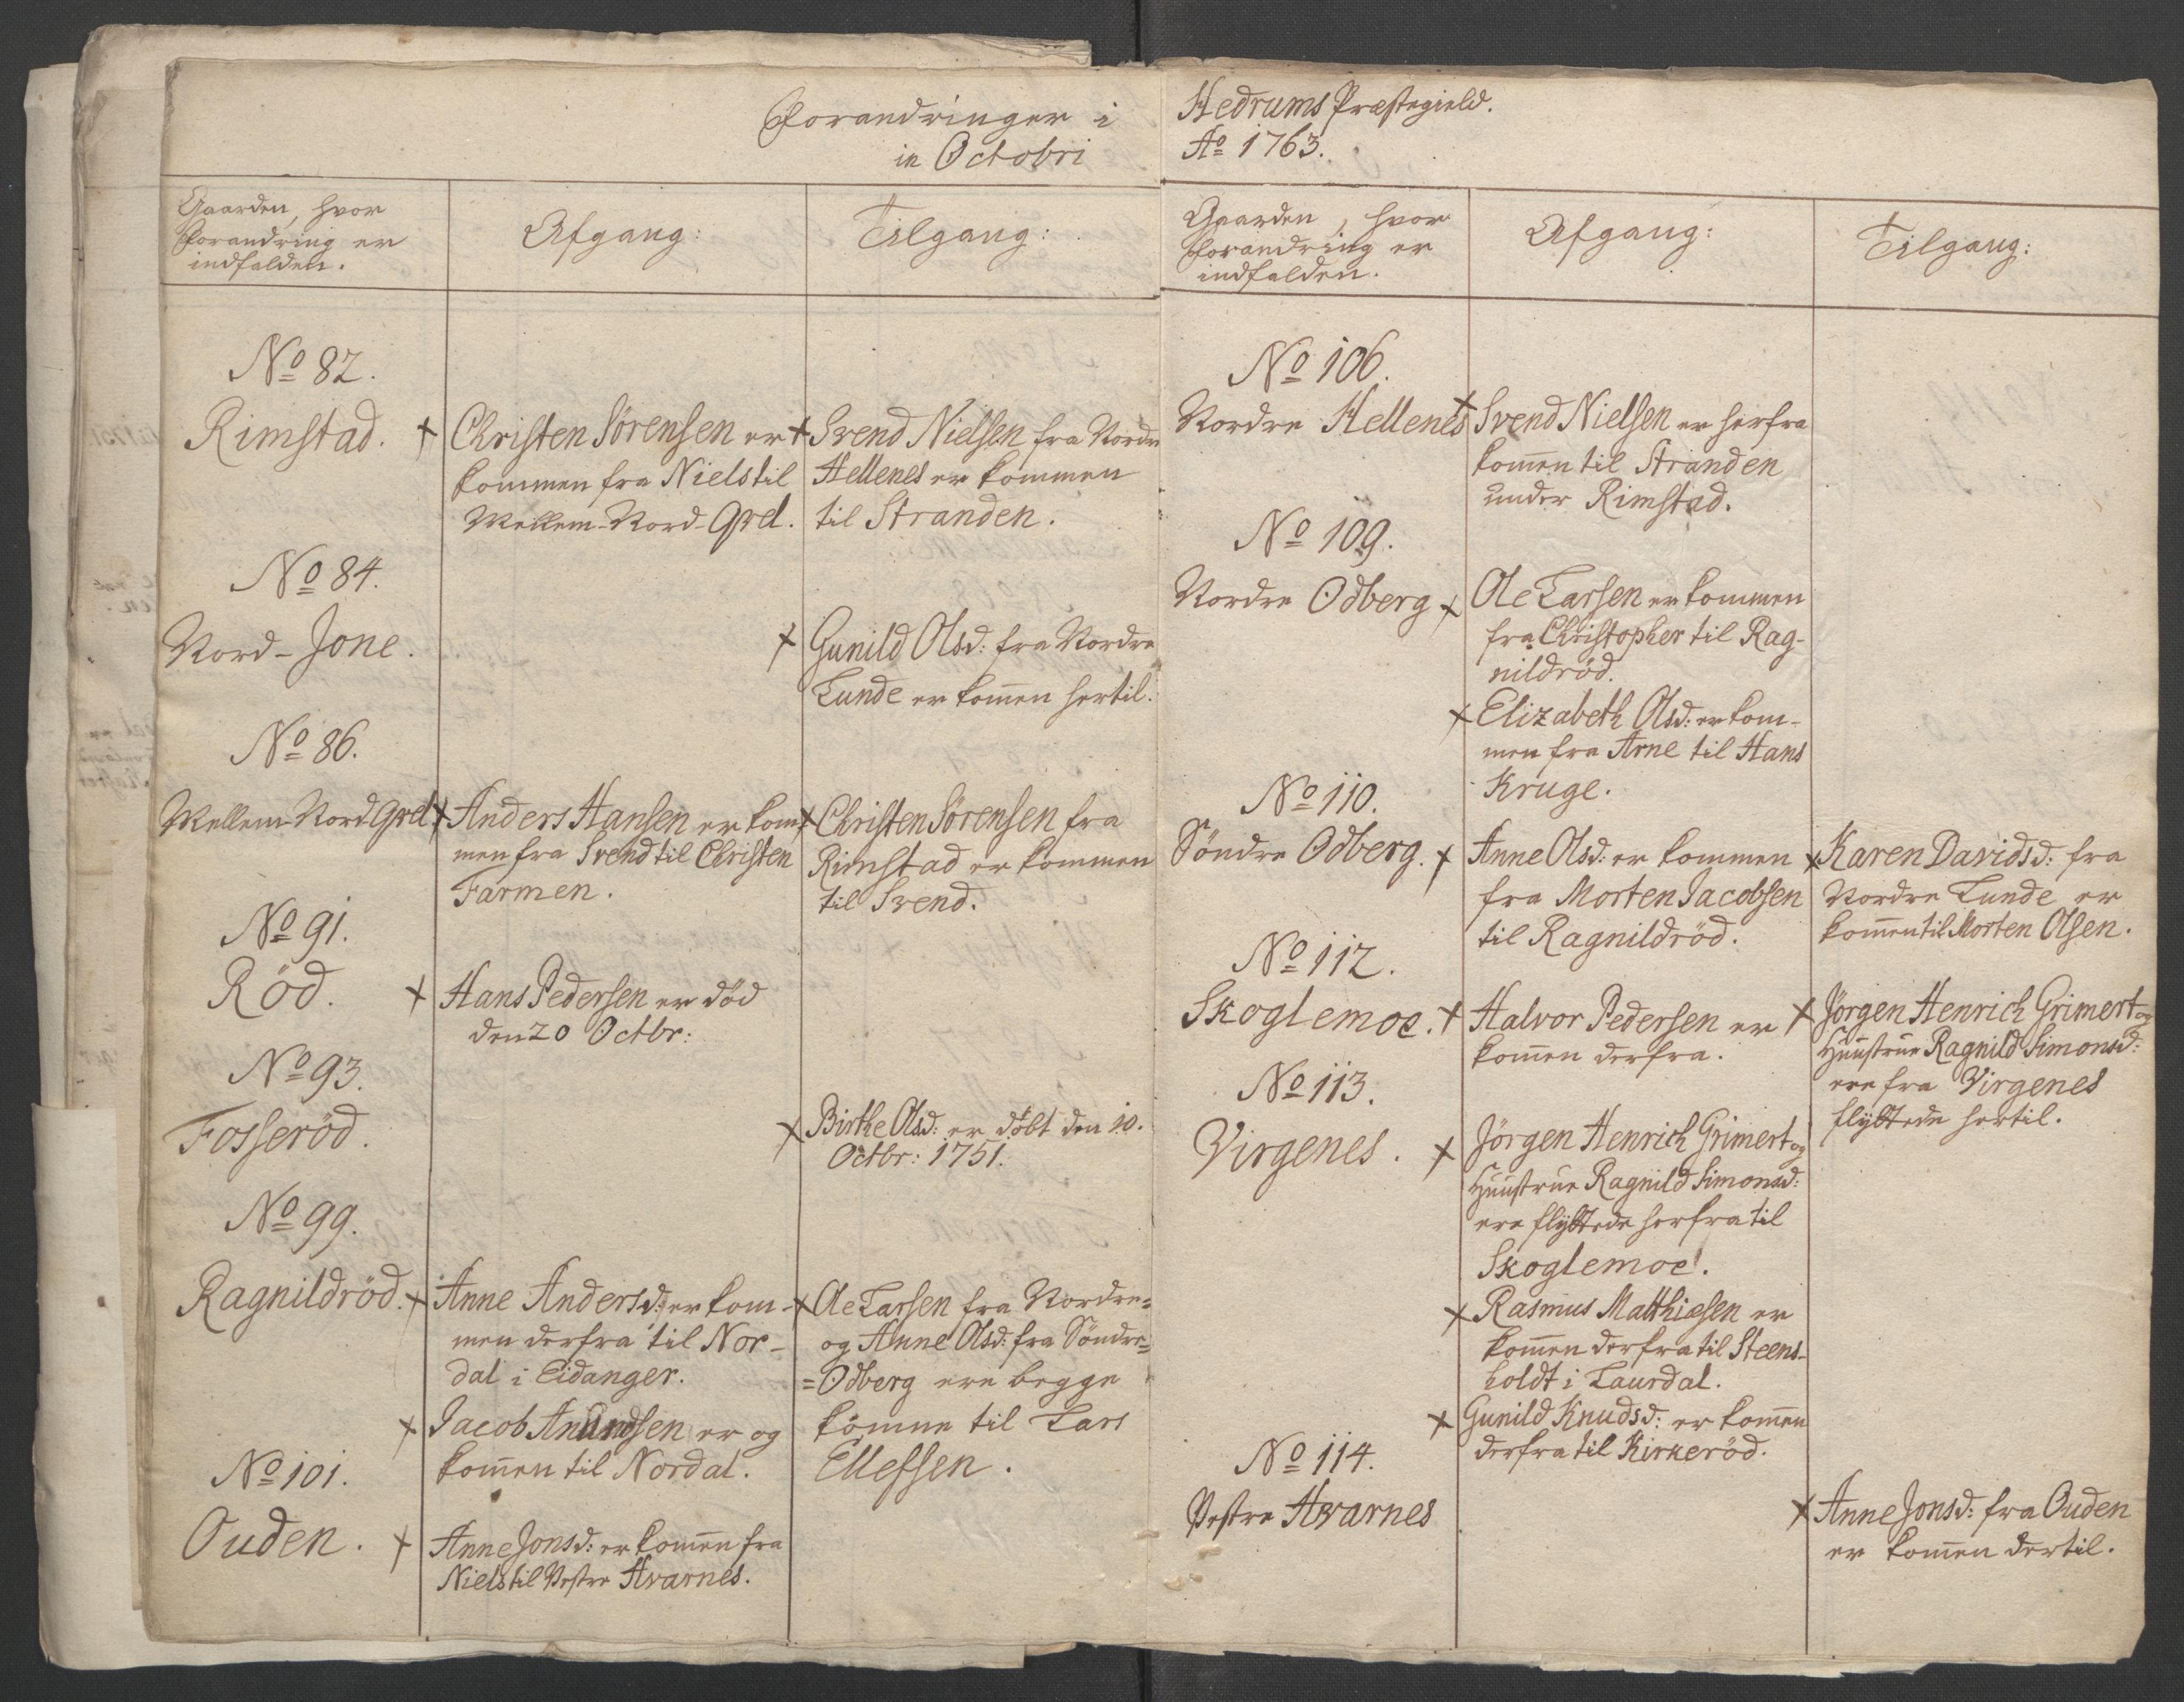 Forandringer i
in Octobri
Gaarden, hvor
forandring er
indfalden.
Afgang:
Tilgang:
No 82.
Rimstad.
+ Christen Sørensen er
kommen fra Niels til
Mellem-Nord-Qvel.
+ Svend Nielsen fra Nordre
Hellenes er kommen
til Stranden.
No 84.
Nord-Jone.
+ Gunild Olsd: fra Nordre
Lunde er kom̄en hertil.
No 86.
Mellem-Nord Qvel
+ Anders Hansen er kom-
men fra Svend til Christen
Farmen.
+ Christen Sørensen fra
Rimstad er kommen
til Svend.
No 91.
Röd.
+ Hans Pedersen er död
den 20 Octbr:
No 93.
Fosseröd.
+ Birthe Olsd: er döbt den 10.
Octbr: 1751.
No 99.
Ragnildröd.
+ Anne Andersd: er kom-
men derfra til Nor-
dal i Eidanger.
+ Jacob Anundsen er og
kom̄en til Nordal.
+ Ole Larsen fra Nordre=
og Anne Olsd: fra Söndre=
=Odberg ere begge
komne til Lars
Ellefsen.
No 101.
Ouden.
+ Anne Jonsd: er kom̄en fra
Niels til Vestre Hvarnes.
Hedrums Præstegield.
Ao 1763.
Gaarden, hvor
forandring er
indfalden.
Afgang:
Tilgang:
No 106.
Nordre Hellenes
+ Svend Nielsen er herfra
kom̄en til Stranden
under Rimstad.
No 109.
Nordre Odberg
+ Ole Larsen er kommen
fra Christopher til Rag-
nildröd.
+ Elizabeth Olsd: er kom-
men fra Arne til Hans
Kruge.
No 110.
Söndre Odberg.
+ Anne Olsd: er kommen
fra Morten Jacobsen
til Ragnildröd.
+ Karen Davidsd: fra
Nordre Lunde er
kom̄en til Morten Olsen.
No 112.
Skoglemoe.
+ Halvor Pedersen er
kom̄en derfra.
+ Jörgen Henrich Grimert og
Huustrue Ragnild Simonsd:
ere fra Virgenes
flyttede hertil.
No 113.
Virgenes.
+ Jörgen Henrich Grimert og
Huustrue Ragnild Simonsd:
ere flyttede herfra til
Skoglemoe.
+ Rasmus Matthiasen er
kom̄en derfra til Steens-
holdt i Laurdal.
+ Gunild Knudsd: er kom̄en
derfra til Kirkeröd.
No 114.
Vestre Hvarnes
+ Anne Jonsd: fra Ouden
er kom̄en dertil.